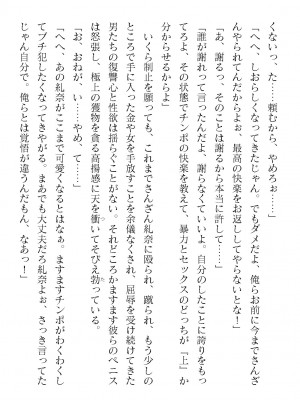 くないっ、た……頼むから、やめろぉ……」
「へへ、しおらしくなってきたじゃん。でもダメだよ、俺らお前に今までさんざ
んやられてんだからよぉ、最高の快楽をお返ししてやらないとな！」
「あ、謝るっ、そのことは謝るから本当に許して……」
「誰が謝れって言ったんだよ、謝らなくていいよ。自分のしたことに誇りをもっ
てろよ、その状態でチンポの快楽を教えて、暴力とセックスのどっちが『上』か
分からせるからよ」
いくら制止を願っても、これまでさんざん糺奈に殴られ、蹴られ、もう少しの
ところで手に入った金や女を手放すことを余儀なくされ、屈辱を受け続けてきた
男たちの復讐心と性欲は揺らぐことがない。それどころかますます彼らのペニス
は怒張し、極上の獲物を貪る高揚感に天を衝いてそびえ勃っている。
「お、おねが、い……や、めて……」
「へへ、あの糺奈がここまで可愛くなるとはなぁ。ますますチンポがわくわくし
てブチ犯したくなってきやがる。まあでも大丈夫だろ糺奈よぉ、さっき言ってた
じゃん自分で。俺らとは覚悟が違うんだもん、なあっ！」